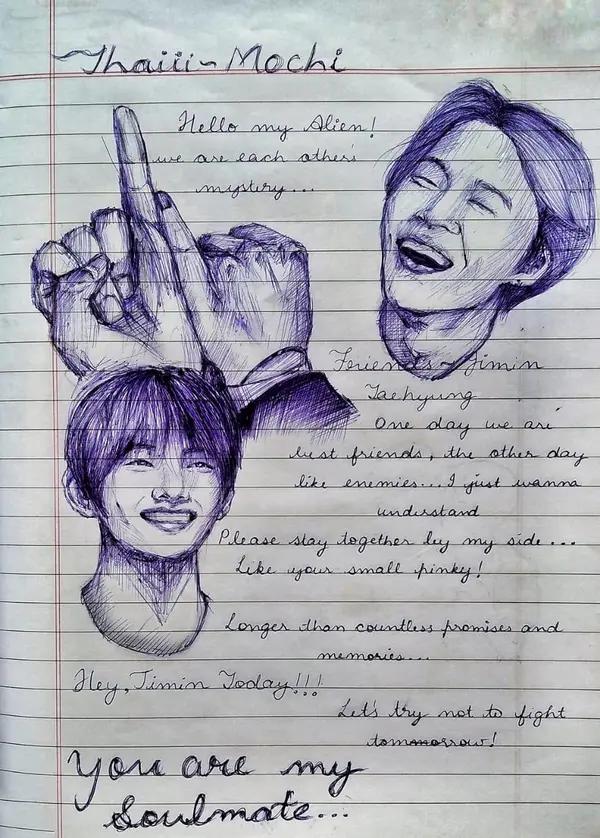 ~Thaiii~Mochi
Hello my Alien!
we are each other's
mystery...
Friends~Jimin
Taehyung
One day we are
best friends, the other day
like enemies... I just wanna
understand
Please stay together by my side...
Like your small pinky!
Longer than countless promises and
memories...
Hey, Jimin Today!!!
Let's try not to fight
tomorrow!
You are my
Soulmate...